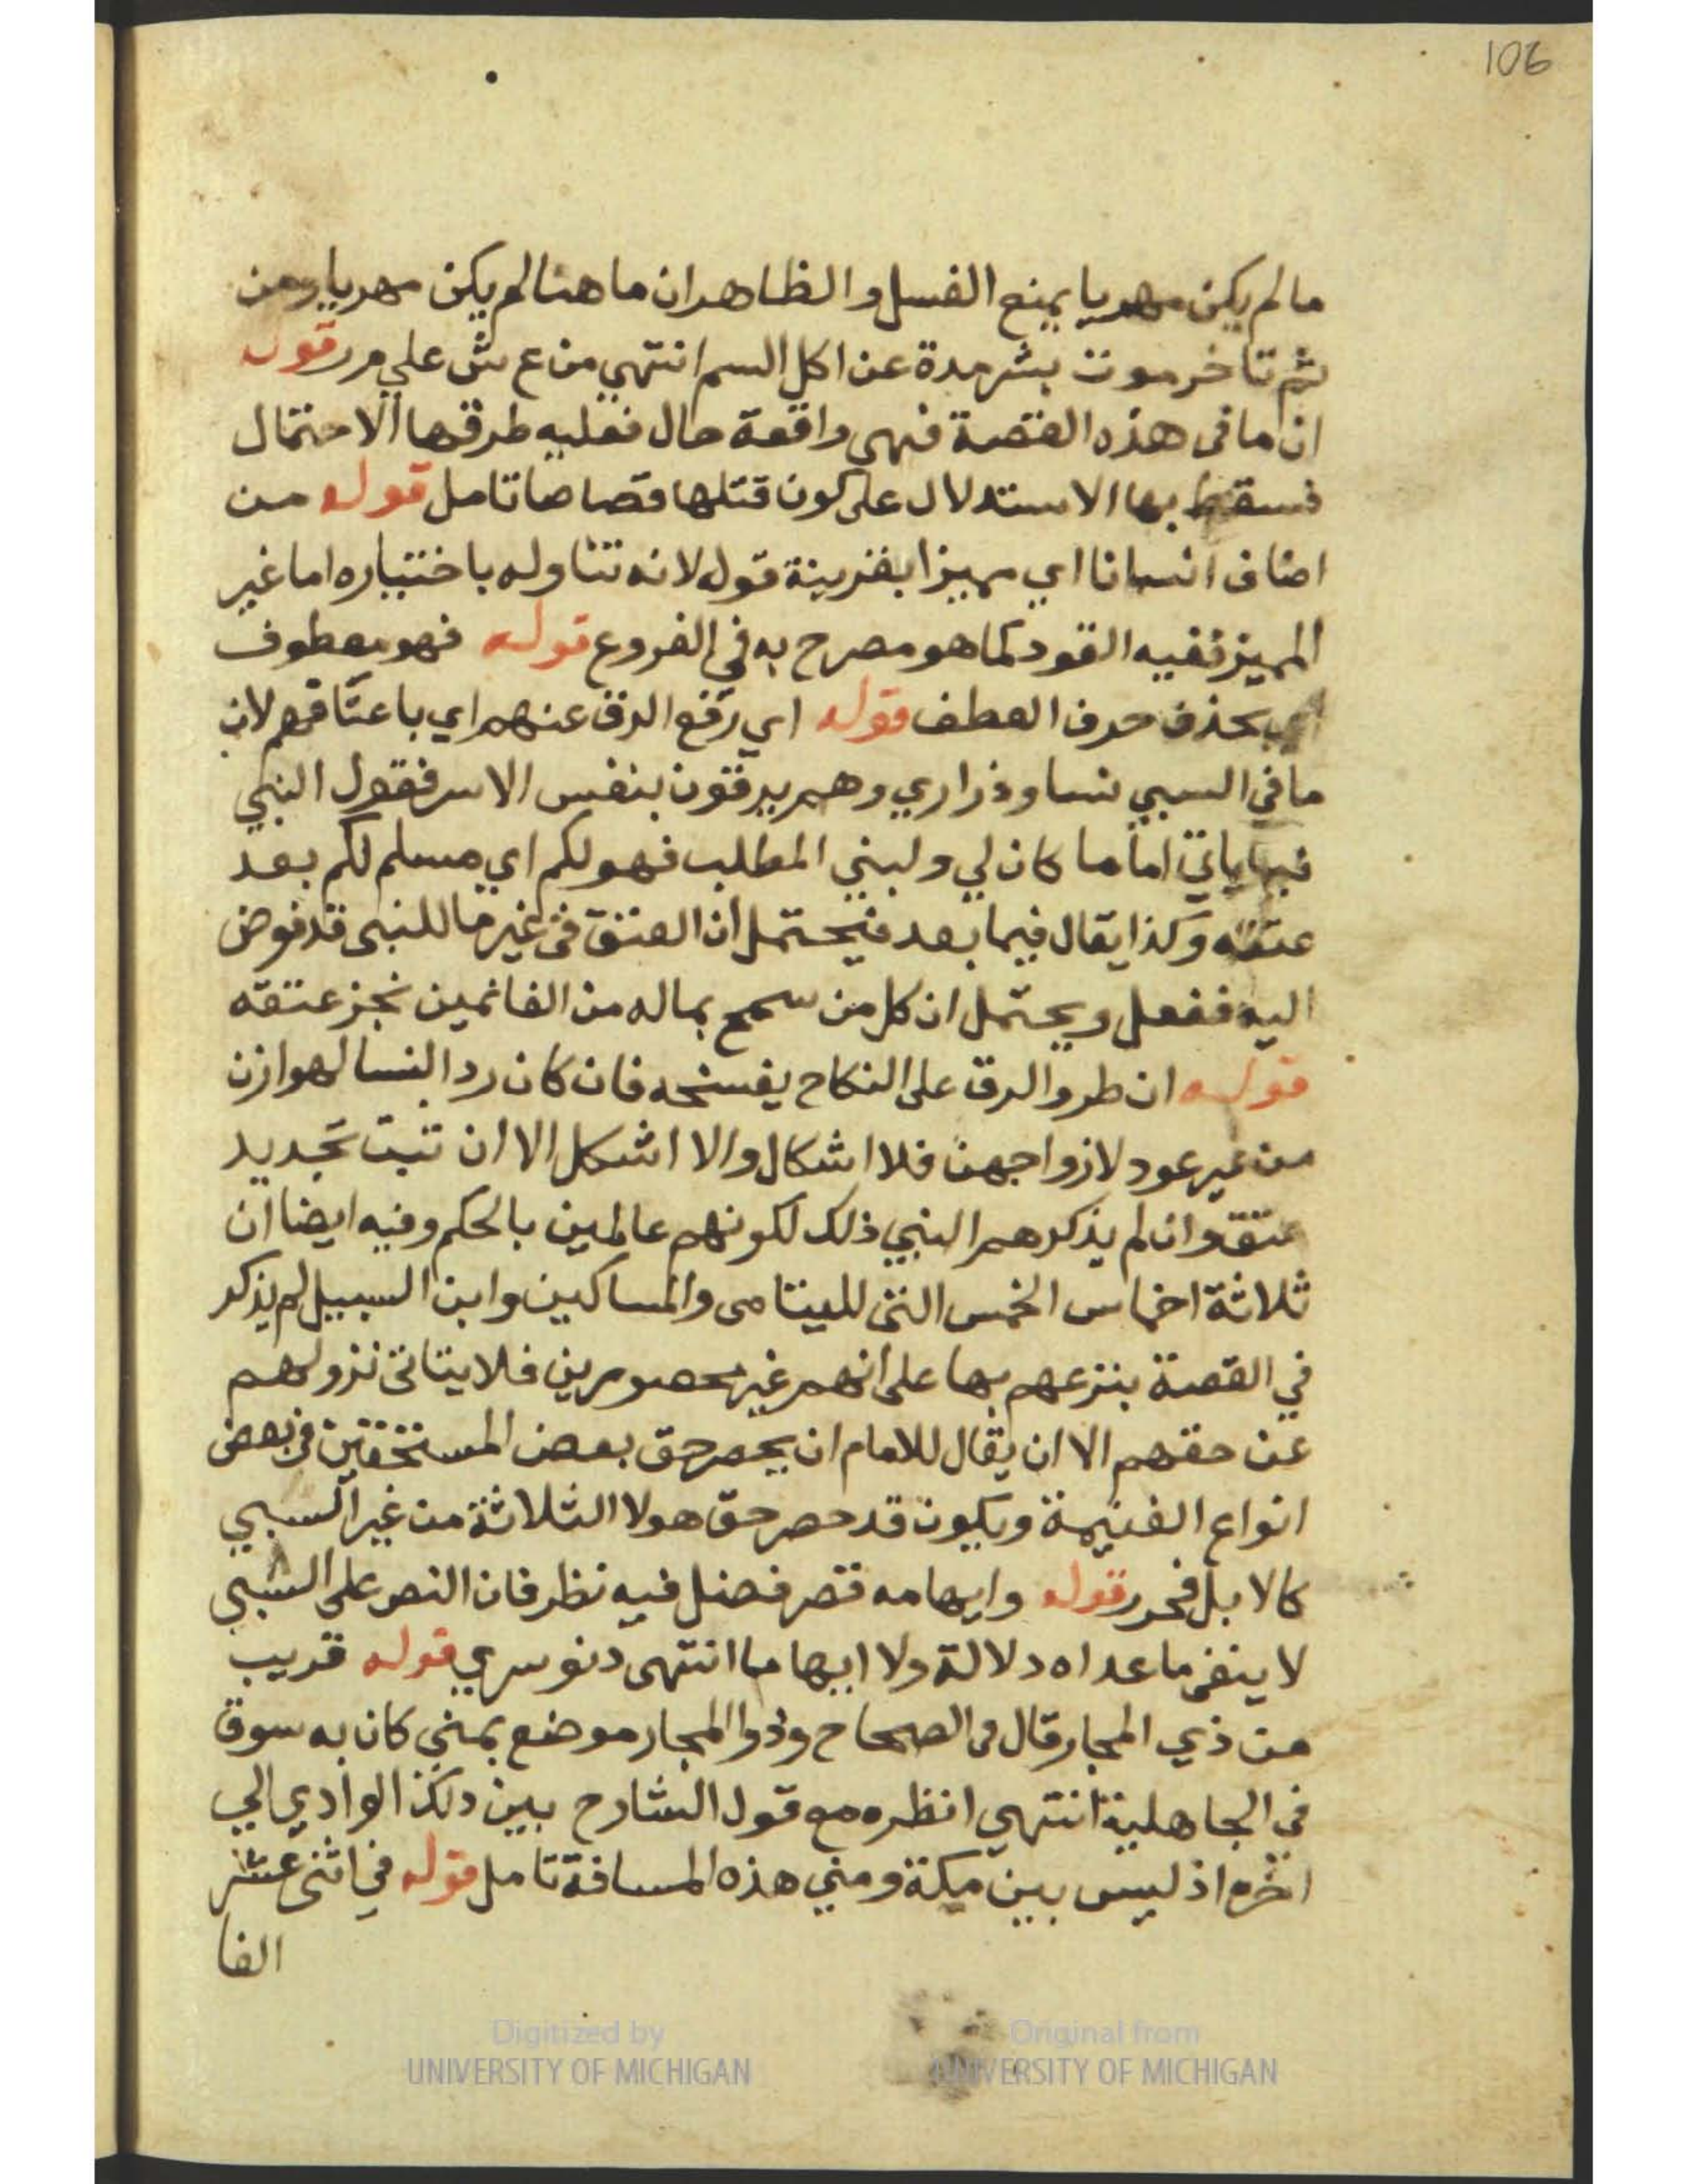 106
ما لم يكن مهريا يمنع الغسل والظاهر ان ما هنا لم يكن مهريا ومن
ثم تاخر موت بشر مدة عن اكل السم انتهي من ع ش علي م ر قوله
ان ما في هذه القصة فهي واقعة حال فعليه طرقها الاحتمال
فسقط بها الاستدلال على كون قتلها قصاصا تامل قوله من
اضاف انسانا اي مميزا بقرينة قوله لانه تناوله باختياره اما غير
المميز ففيه القود كما هو مصرح به في الفروع قوله فهو معطوف
اي بحذف حرف العطف قوله اي رفع الرق عنهم اي باعتاقهم لان
ما في السبي نسا وذراري وهم يرقون بنفس الاسر فقول النبي
فيما ياتي اما ما كان لي ولبني المطلب فهو لكم اي مسلم لكم بعد
عتقه وكذا يقال فيما بعد فيحتمل ان العتق في غير ما للنبي قد فوض
اليه ففعل ويحتمل ان كل من سمح بماله من الغانمين نجز عتقه
قوله ان طرو الرق على النكاح يفسخه فان كان رد النسا لهوازن
من غير عود لازواجهن فلا اشكال والا اشكل الا ان ثبت تجديد
عتق وان لم يذكرهم النبي ذلك لكونهم عالمين بالحكم وفيه ايضا ان
ثلاثة اخماس الخمس التي لليتامى والمساكين وابن السبيل لم يذكر
في القصة بنزعهم بها على انهم غير محصورين فلا يتاتى نزولهم
عن حقهم الا ان يقال للامام ان يحصر حق بعض المستحقين في بعض
انواع الغنيمة ويكون قد حصر حق هولا الثلاثة من غير السبي
كالابل فحرر قوله وايهامه قصر فضل فيه نظر فان النص على السبي
لا ينفي ما عداه دلالة ولا ايهاما انتهى دنوسري قوله قريب
من ذي المجار قال في الصحاح وذوا المجار موضع بمني كان به سوق
في الجاهلية انتهي انظره مع قول الشارح بين ذلك الوادي الي
اخره اذ ليس بين مكة ومني هذه المسافة تامل قوله في اثنى عشر
الفا
Digitized by
UNIVERSITY OF MICHIGAN
Original from
UNIVERSITY OF MICHIGAN